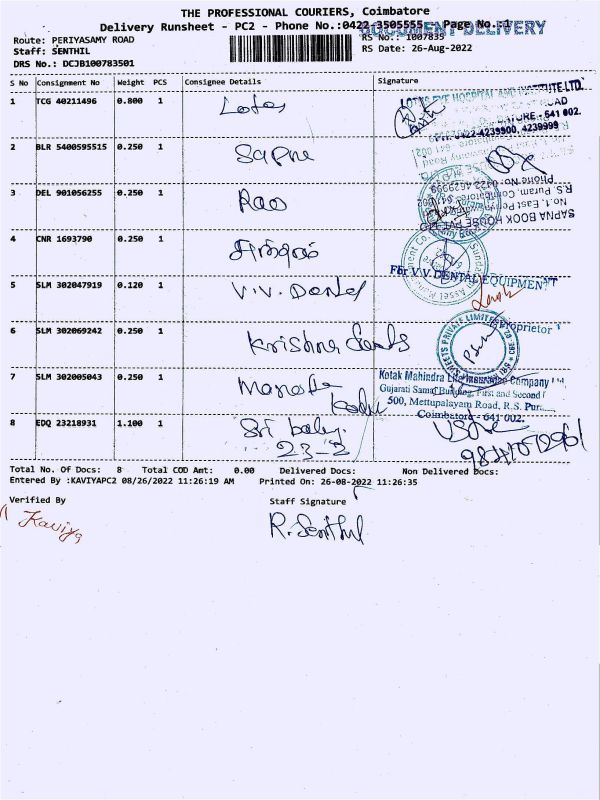 THE PROFESSIONAL COURIERS, Coimbatore
Delivery Runsheet - PC2 - Phone No.:0422-3505555 Page No.:1
DOCUMENT DELIVERY
Route: PERIYASAMY ROAD
RS No.: 1007835
Staff: SENTHIL
RS Date: 26-Aug-2022
DRS No.: DCJB100783501
S No Consignment No Weight PCS Consignee Details Signature
1 TCG 40211496 0.800 1 Lotus
LOTUS EYE HOSPITAL AND INSTITUTE LTD.
ROAD
641 002.
PH: 0422-4239900, 4239999
2 BLR 5400595515 0.250 1 Sapna
3 DEL 901056255 0.250 1 Rao
SAPNA BOOK HOUSE PVT LTD
No.1, East Periyasamy
R.S. Puram, Coimbatore
Phone No: 0422-4629999
4 CNR 1693790 0.250 1
5 SLM 302047919 0.120 1 V.V. Dental
For V.V. DENTAL EQUIPMENT
Proprietor
6 SLM 302069242 0.250 1 Krishna
SWEETS PRIVATE LIMITED
7 SLM 302005043 0.250 1
Kotak Mahindra Life Insurance Company
Gujarati Samaj Building, First and Second
500, Mettupalayam Road, R.S. Pur
Coimbatore - 641 002.
8 EDQ 23218931 1.100 1 Sri baby.
23-2
Total No. OF Docs: 8 Total COD Amt: 0.00 Delivered Docs: Non Delivered Docs:
Entered By :KAVIYAPC2 08/26/2022 11:26:19 AM Printed On: 26-08-2022 11:26:35
Verified By Staff Signature
Kaviya R. Senthil